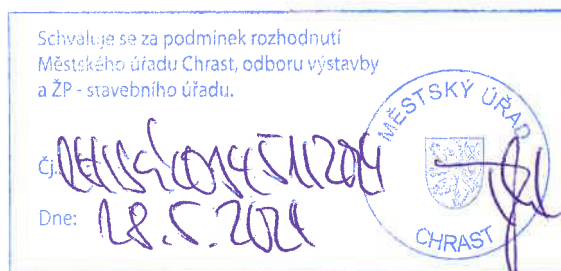 Schvaluje se za podmínek rozhodnutí
Městského úřadu Chrast, odboru výstavby
a ŽP - stavebního úřadu.
Čj.
Dne: 28.5.2021
MĚSTSKÝ ÚŘAD
CHRAST